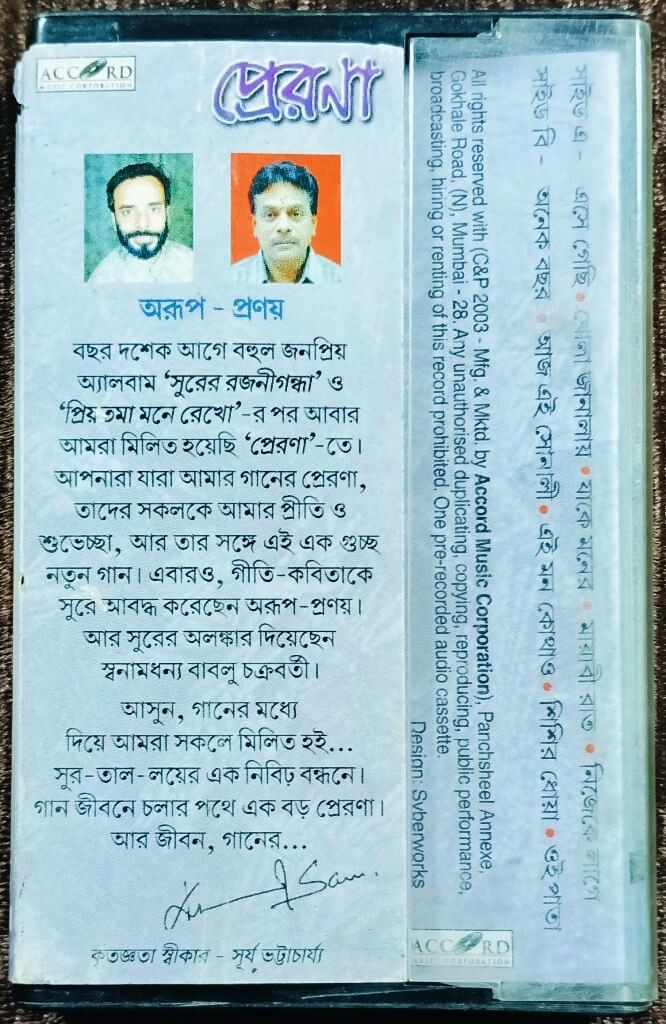 ACCORD
MUSIC CORPORATION
প্রেরণা
অরূপ - প্রণয়
বছর দশেক আগে বহুল জনপ্রিয়
অ্যালবাম ‘সুরের রজনীগন্ধা’ ও
‘প্রিয়তমা মনে রেখো’-র পর আবার
আমরা মিলিত হয়েছি ‘প্রেরণা’-তে।
আপনারা যারা আমার গানের প্রেরণা,
তাদের সকলকে আমার প্রীতি ও
শুভেচ্ছা, আর তার সঙ্গে এই এক গুচ্ছ
নতুন গান। এবারও, গীতি-কবিতাকে
সুরে আবদ্ধ করেছেন অরূপ-প্রণয়।
আর সুরের অলঙ্কার দিয়েছেন
স্বনামধন্য বাবলু চক্রবর্তী।
আসুন, গানের মধ্যে
দিয়ে আমরা সকলে মিলিত হই...
সুর-তাল-লয়ের এক নিবিঢ় বন্ধনে।
গান জীবনে চলার পথে এক বড় প্রেরণা।
আর জীবন, গানের...
কৃতজ্ঞতা স্বীকার - সূর্য ভট্টাচার্য্য
সাইড এ - এসে গেছি • খোলা জানালায় • যাকে মনের • মায়াবী রাত • নিজেকে লাগে
সাইড বি - অনেক বছর • আজ এই সোনালী • এই মন কোথাও • শিশির ধোয়া • ওই পাতা
All rights reserved with (C&P 2003 - Mfg. & Mktd by Accord Music Corporation), Panchsheel Annexe,
Gokhale Road, (N), Mumbai - 28. Any unauthorised duplicating, copying, reproducing, public performance,
broadcasting, hiring or renting of this record prohibited. One pre-recorded audio cassette.
Design: Svberworks
ACCORD
MUSIC CORPORATION